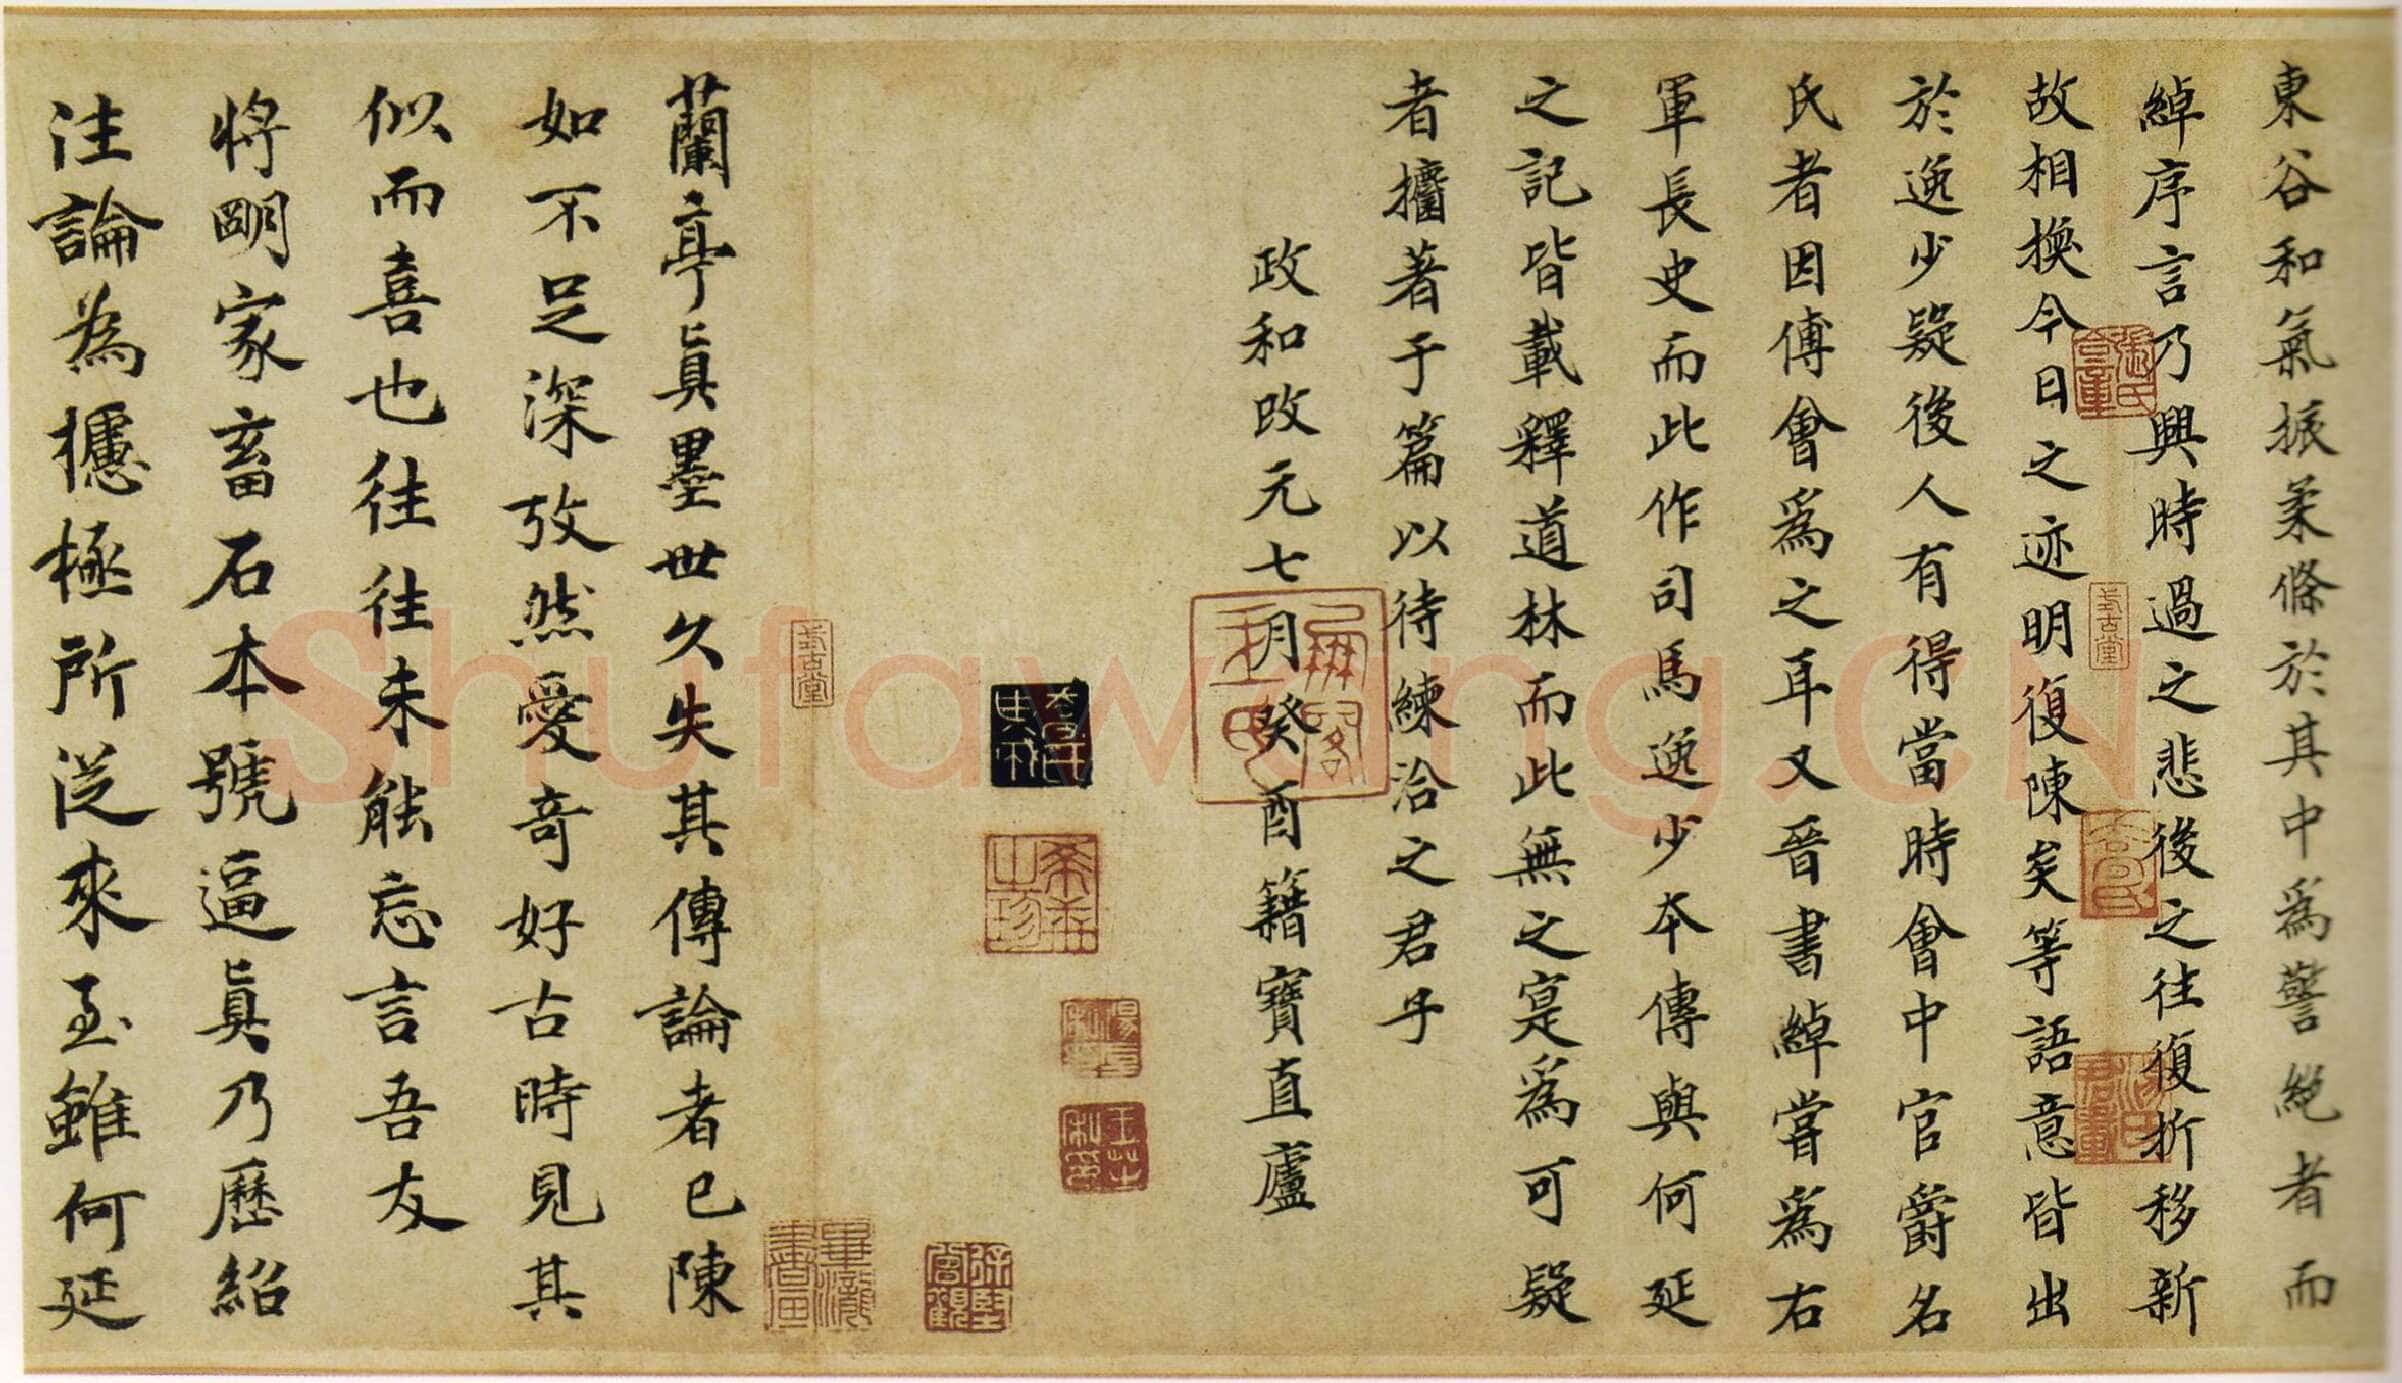 東谷和氣振柔條於其中為警絕者而
綽序言乃興時過之悲後之往復折移新
故相換今日之迹明復陳矣等語意皆出
於逸少疑後人有得當時會中官爵名
氏者因傅會為之耳又晉書綽嘗為右
軍長史而此作司馬逸少本傳與何延
之記皆載釋道林而此無之寔為可疑
者攟著于篇以待練洽之君子
政和改元七月癸酉籍寶直廬
蘭亭真墨世久失其傳論者已陳
如不足深攷然愛奇好古時見其
似而喜也往往未能忘言吾友
將明家畜石本號逼真乃歷紹
注論為攄極所從來至雖何延
Shufawang.CN